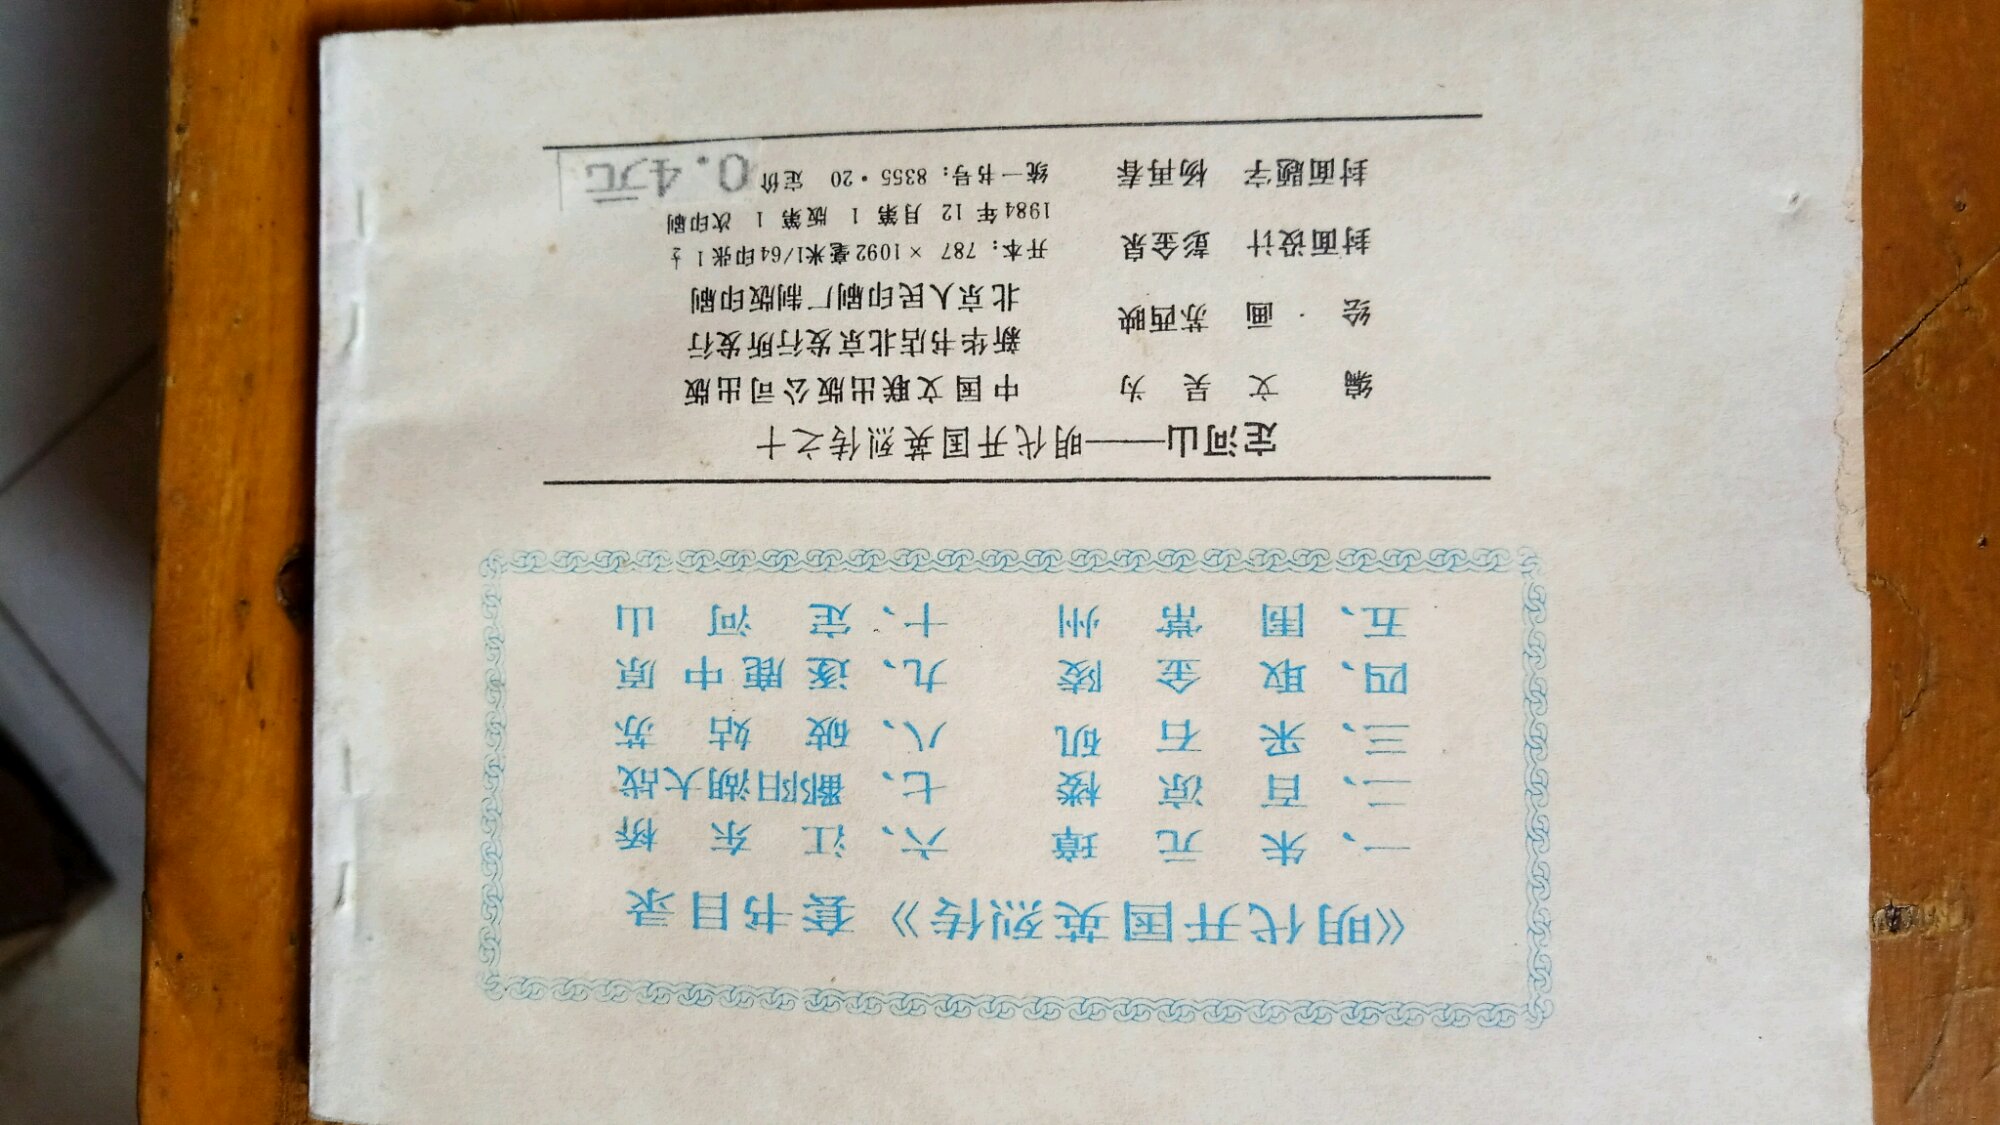 《明代开国英烈传》套书目录
一、朱元璋 六、江东桥
二、百凉楼 七、鄱阳湖大战
三、采石矶 八、破姑苏
四、取金陵 九、逐鹿中原
五、围常州 十、定河山
定河山——明代开国英烈传之十
编文 吴为
绘·画 苏西映
封面设计 彭金泉
封面题字 杨再春
中国文联出版公司出版
新华书店北京发行所发行
北京人民印刷厂制版印刷
开本：787×1092毫米1/64印张1
1984年12月第1版第1次印刷
统一书号：8355·20 定价0.4元